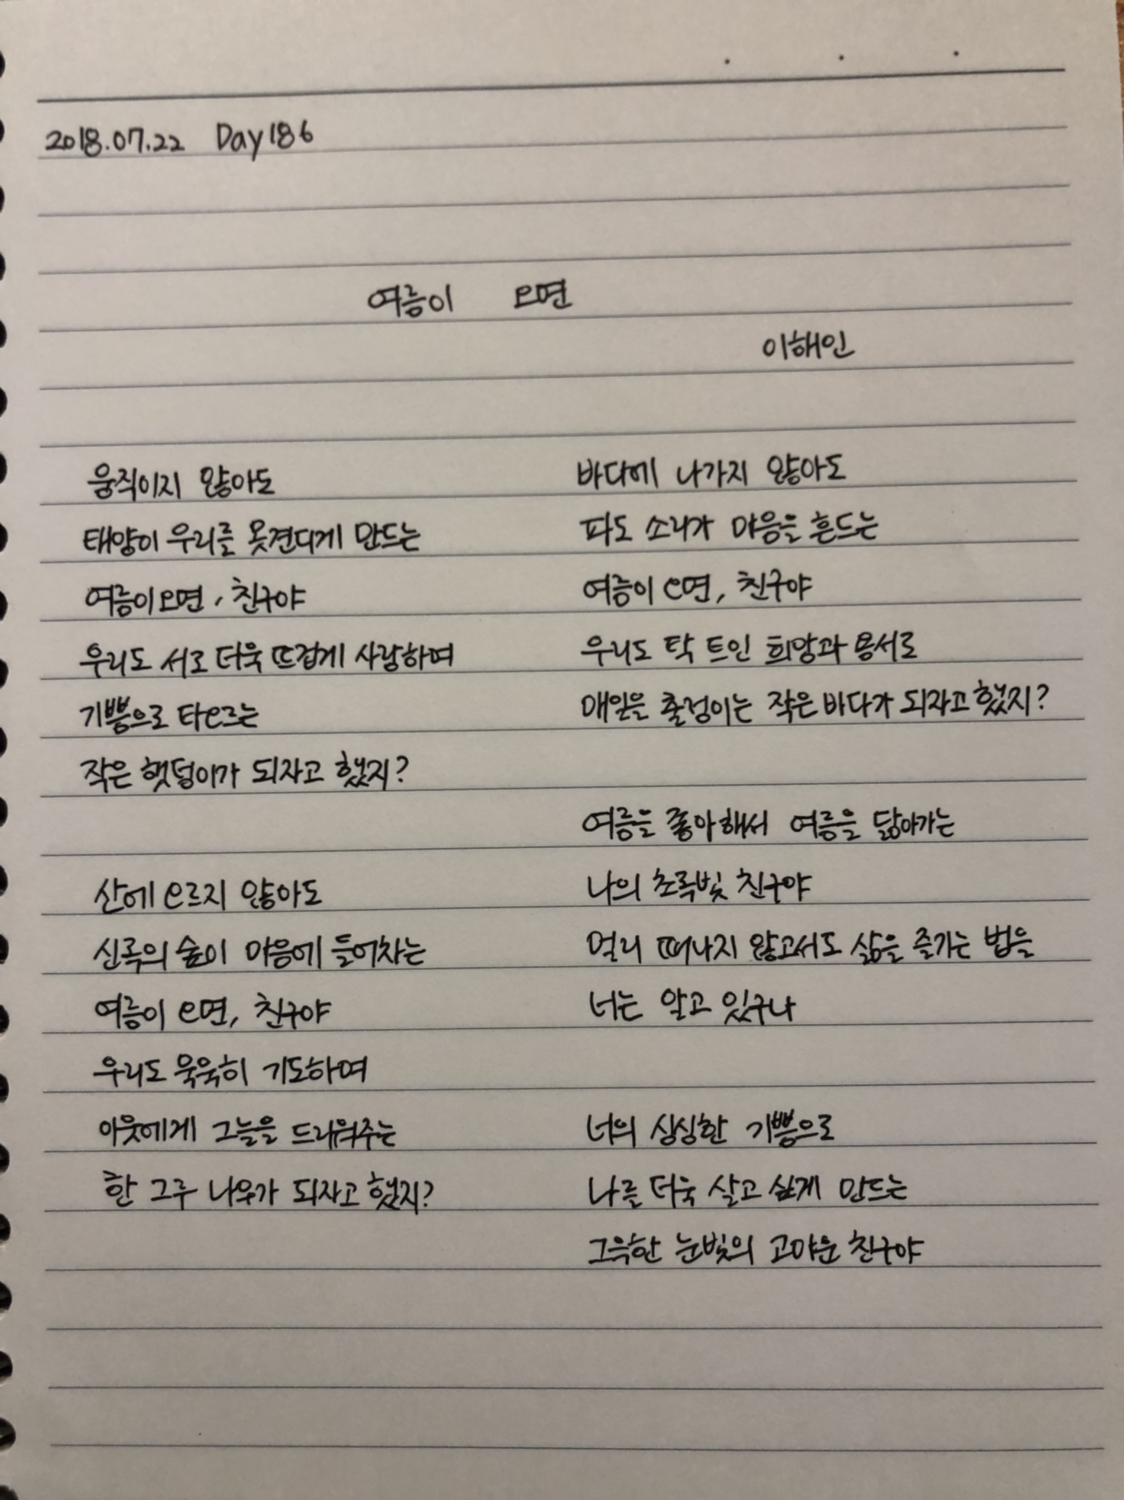 2018.07.22 Day186
여름이 오면
이해인
움직이지 않아도
태양이 우리를 못견디게 만드는
여름이 오면, 친구야
우리도 서로 더욱 뜨겁게 사랑하며
기쁨으로 타오르는
작은 햇덩이가 되자고 했지?
산에 오르지 않아도
신록의 숲이 마음에 들어차는
여름이 오면, 친구야
우리도 묵묵히 기도하며
이웃에게 그늘을 드리워주는
한 그루 나무가 되자고 했지?
바다에 나가지 않아도
파도 소리가 마음을 흔드는
여름이 오면, 친구야
우리도 탁 트인 희망과 용서로
매일을 출렁이는 작은 바다가 되자고 했지?
여름을 좋아해서 여름을 닮아가는
나의 초록빛 친구야
멀리 떠나지 않고서도 삶을 즐기는 법을
너는 알고 있구나
너의 싱싱한 기쁨으로
나를 더욱 살고 싶게 만드는
그윽한 눈빛의 고마운 친구야